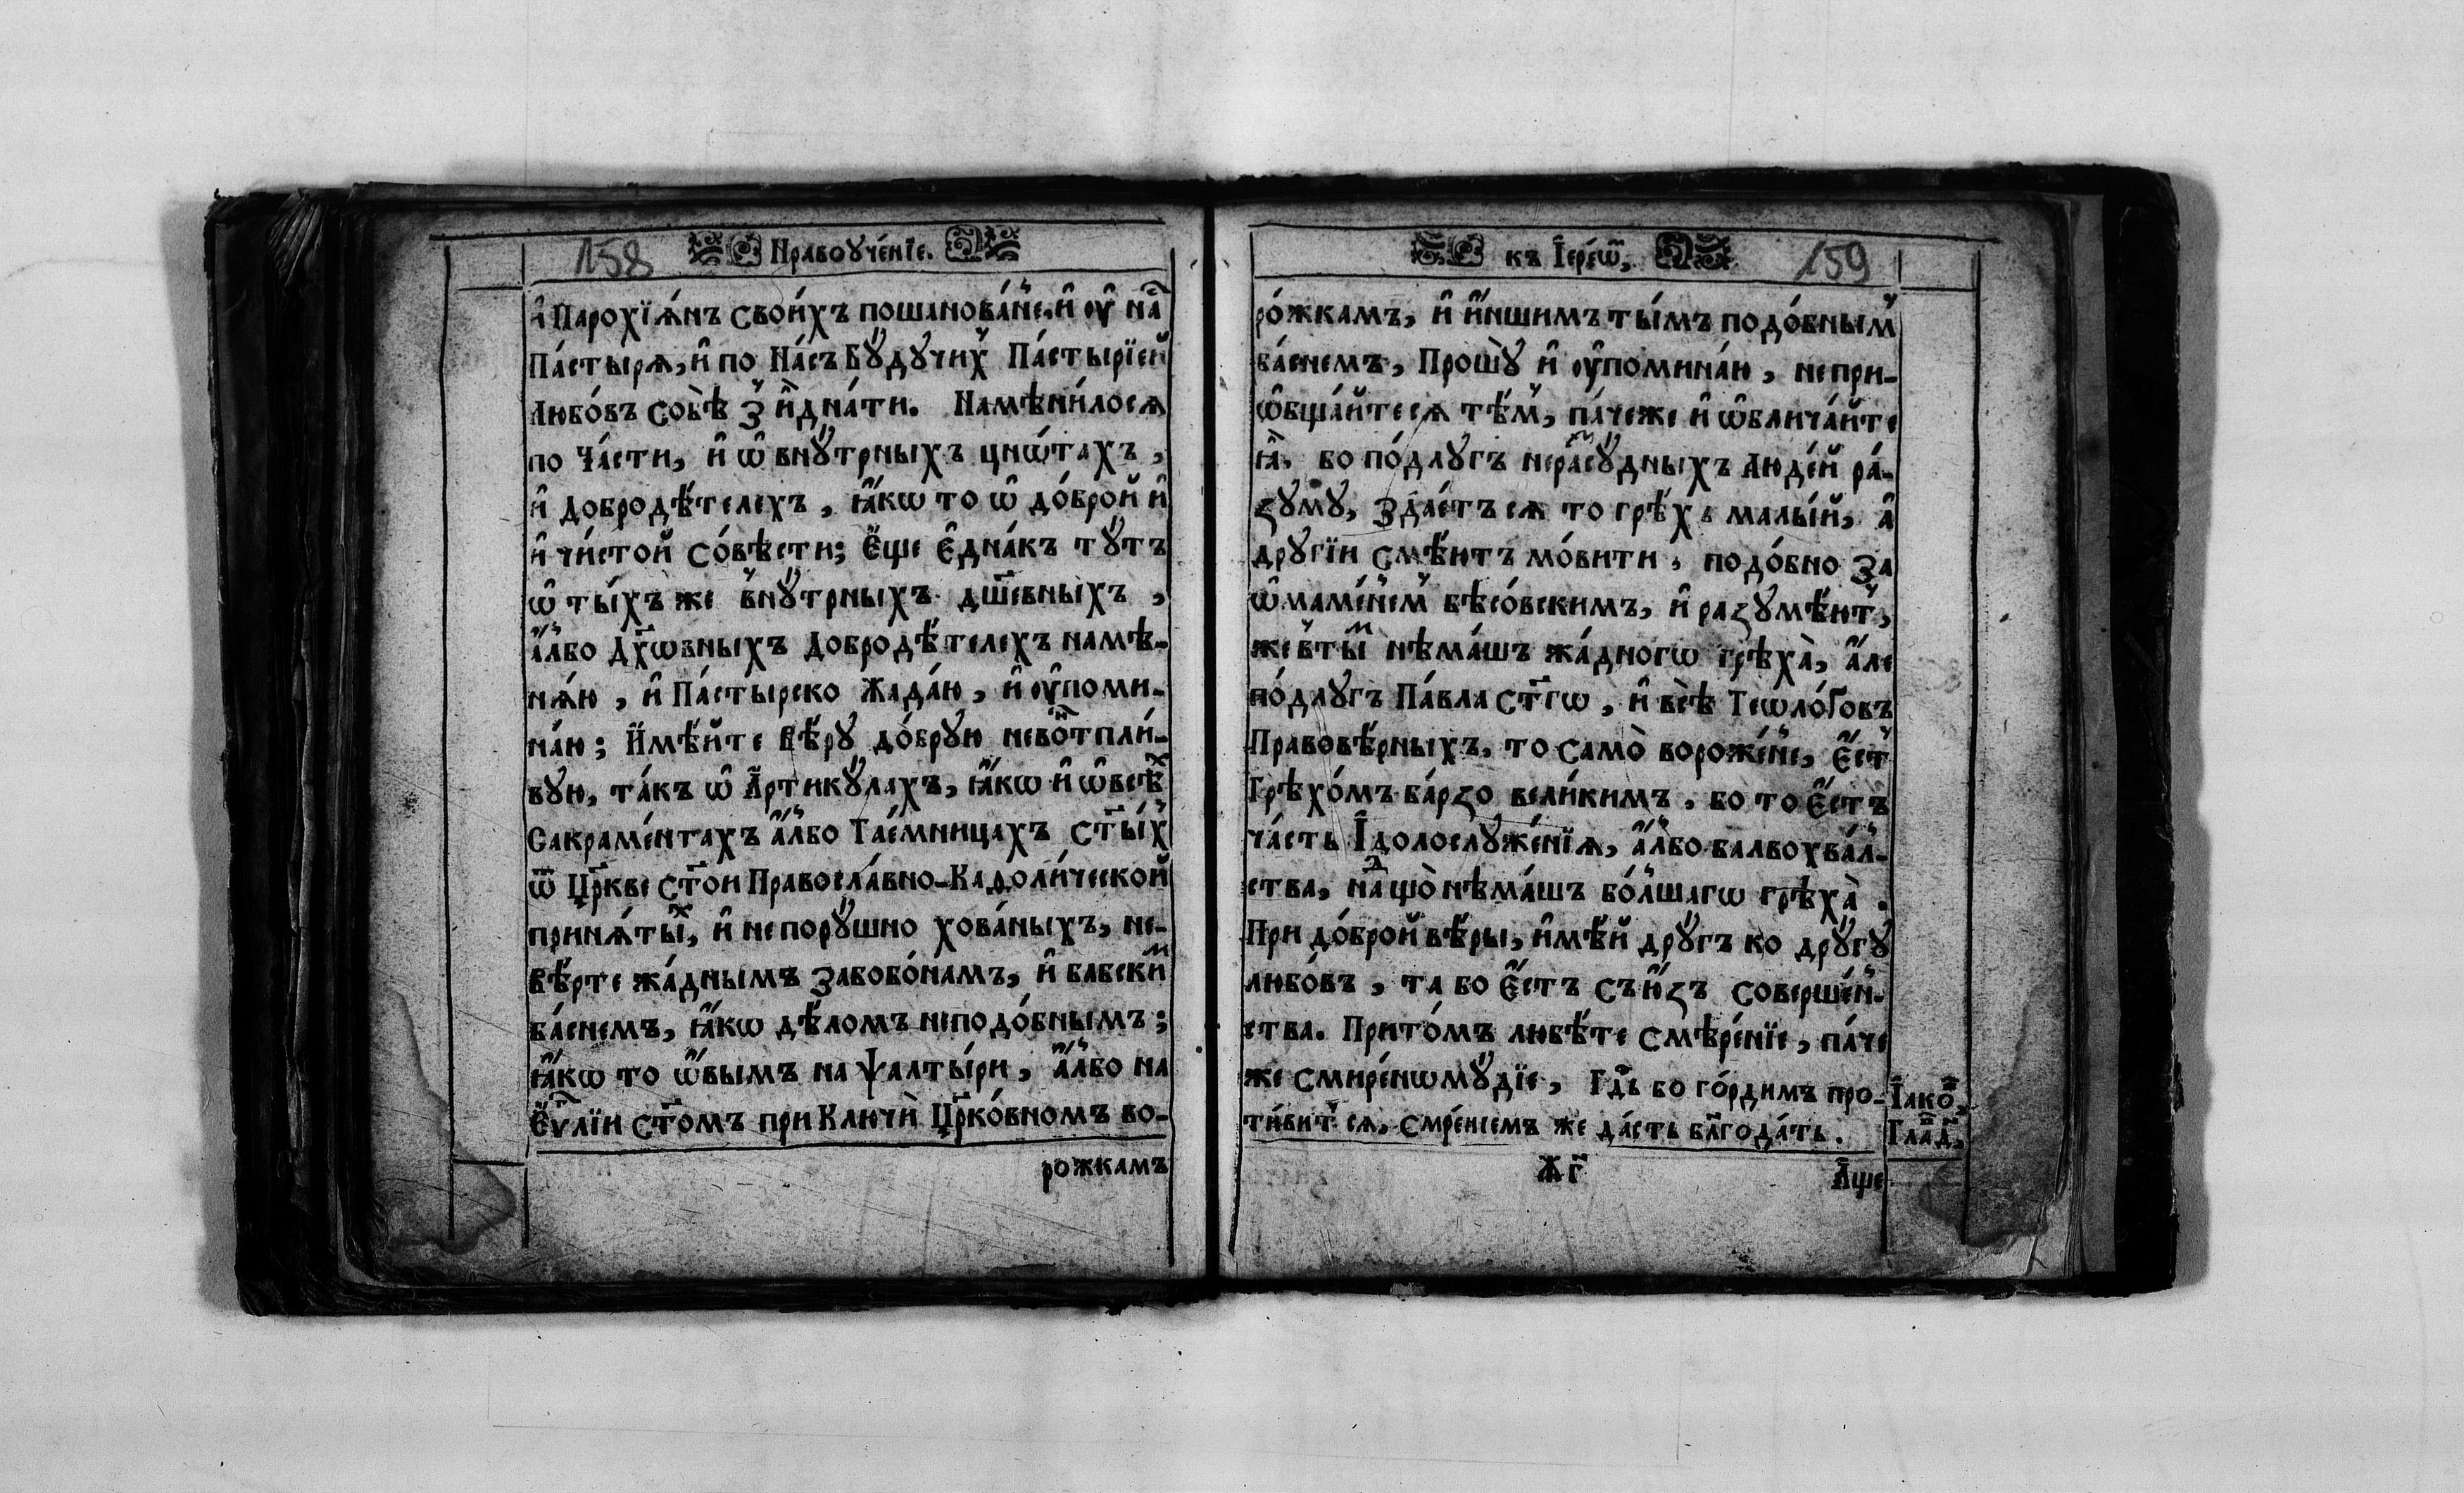 158 Нравоꙋче́нїе.
и҆ Парохїѧ́нъ свои́хъ пошанова́н̾е, и҆ ᲂу҆ на̑
Па́стырѧ, и҆ по На́съ Бꙋ́дꙋчиⷯ Па́стырїей
Любо́въ собѣ̀ з̾ и҆днати. Намѣни́лосѧ
по Ча́сти, и҆ ѡ҆ внꙋ́трныхъ цнѡ́тахъ,
и҆ добродѣ́телехъ, ꙗ҆́кѡ то ѡ҆ до́брой и҆
и҆ чи́стой Со́вѣсти; Е҆́ще Е҆дна́къ тꙋ́тъ
ѡ҆ ты́хъ же внꙋ́трныхъ дш҃евныхъ,
а҆́лбо Дх҃ѡвныхъ Добродѣ́телехъ намѣ-
нѧ́ю, и҆ Па́стырско Жада́ю, и҆ ᲂу҆помн-
на́ю; И҆мѣ́йте Вѣ́рꙋ до́брꙋю невⷪ҇тпли́-
вꙋю, та́къ ѡ҆ А҆ртикꙋ́лахъ, ꙗ҆́кѡ и҆ ѡ҆ всѣⷯ
Сакраме́нтахъ а҆́лбо Тае́мницахъ Ст҃ы́х̾
ѿ Цр҃кве Ст҃ои Правосла́вно-Каѳоли́ческой
принѧ́тыⷯ, и҆ непорꙋ́шно хова́ныхъ, не-
вѣ́рте жа́днымъ Забобо́намъ, и҆ бабскиⷨ
ба́снемъ, ꙗ҆́кѡ дѣ́ломъ неподо́бнымъ;
ꙗ҆́кѡ то ѡ҆́вымъ на Ѱалты́ри, а҆́лбо на
Е҆ѵⷢ҇лїи Ст҃омъ при Ключѝ Цр҃ко́вномъ во-
рожкамъ
къ І҆ере́ѡⷨ, 159
ро́жкамъ, и҆ и҆́ншимъ ты́мъ подо́бным̾
ба́снемъ, Прошꙋ̀ и҆ ᲂу҆помина́ю, непри-
ѡ҆бща́йтесѧ тѣ́м̾, па́чеже и҆ ѡ҆блича́йте
ꙗ҆̀. бо по́длꙋгъ нераⷭ҇сꙋ́дныхъ Люде́й ра́-
ꙁꙋмꙋ, Здае́тъсѧ то грѣ́хъ малы́й, а҆
дрꙋгїи смѣ́ютъ мо́вити, подо́бно За
ѡ҆маме́н̾ем̾ бѣсо́вскимъ, и҆ раꙁꙋмѣ́ют̾,
же в̾тыⷨ нѣма́шъ жа́дногѡ грѣха̀, а҆́ле
по́длꙋгъ Па́вла Ст҃гѡ, и҆ всѣ̀ Теѡло́ґовъ
Правовѣ́рныхъ, то Само̀ вороже́н̾е, Е҆́ст̾
Грѣхо́мъ ба́рꙁо вели́кимъ. бо то Е҆́стъ
ча́сть І҆долослꙋже́нїѧ, а҆́лбо балвохва́л-
ства, наⷣ що̀ нѣма́шъ бо́лшагѡ грѣха̀.
При до́брой вѣ́ры, и҆мѣ́й дрꙋ́гъ ко дрꙋ́гꙋ
любо́въ, та бо Е҆́стъ Съю́ꙁъ Соверше́н-
ства. Прито́мъ любѣ́те Смѣре́нїе, па́че
же Смире́нѡмꙋ́дїе, Гдⷭ҇ь бо го́рдимъ про-
ти́вит̾сѧ, Смре́нїемъ же да́сть бл҃года́ть.
І҆акоⷡ҇,
Глаⷡ҇ д҃,
Ѫг҃
А҆́ще